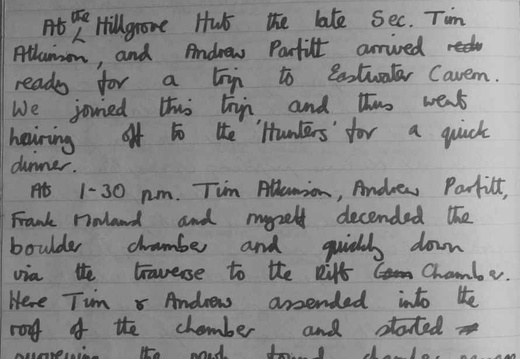 At the Hillgrove Hut the late Sec. Tim
Atkinson, and Andrew Parfitt arrived
ready for a trip to Eastwater Cavern.
We joined this trip and thus went
heiring off to the 'Hunters' for a quick
dinner.
At 1-30 pm. Tim Atkinson, Andrew Parfitt,
Frank Morland and myself decended the
boulder chamber and quickly down
via the traverse to the Rift Chamber.
Here Tim & Andrew assended into the
roof of the chamber and started
surveying the most found chamber